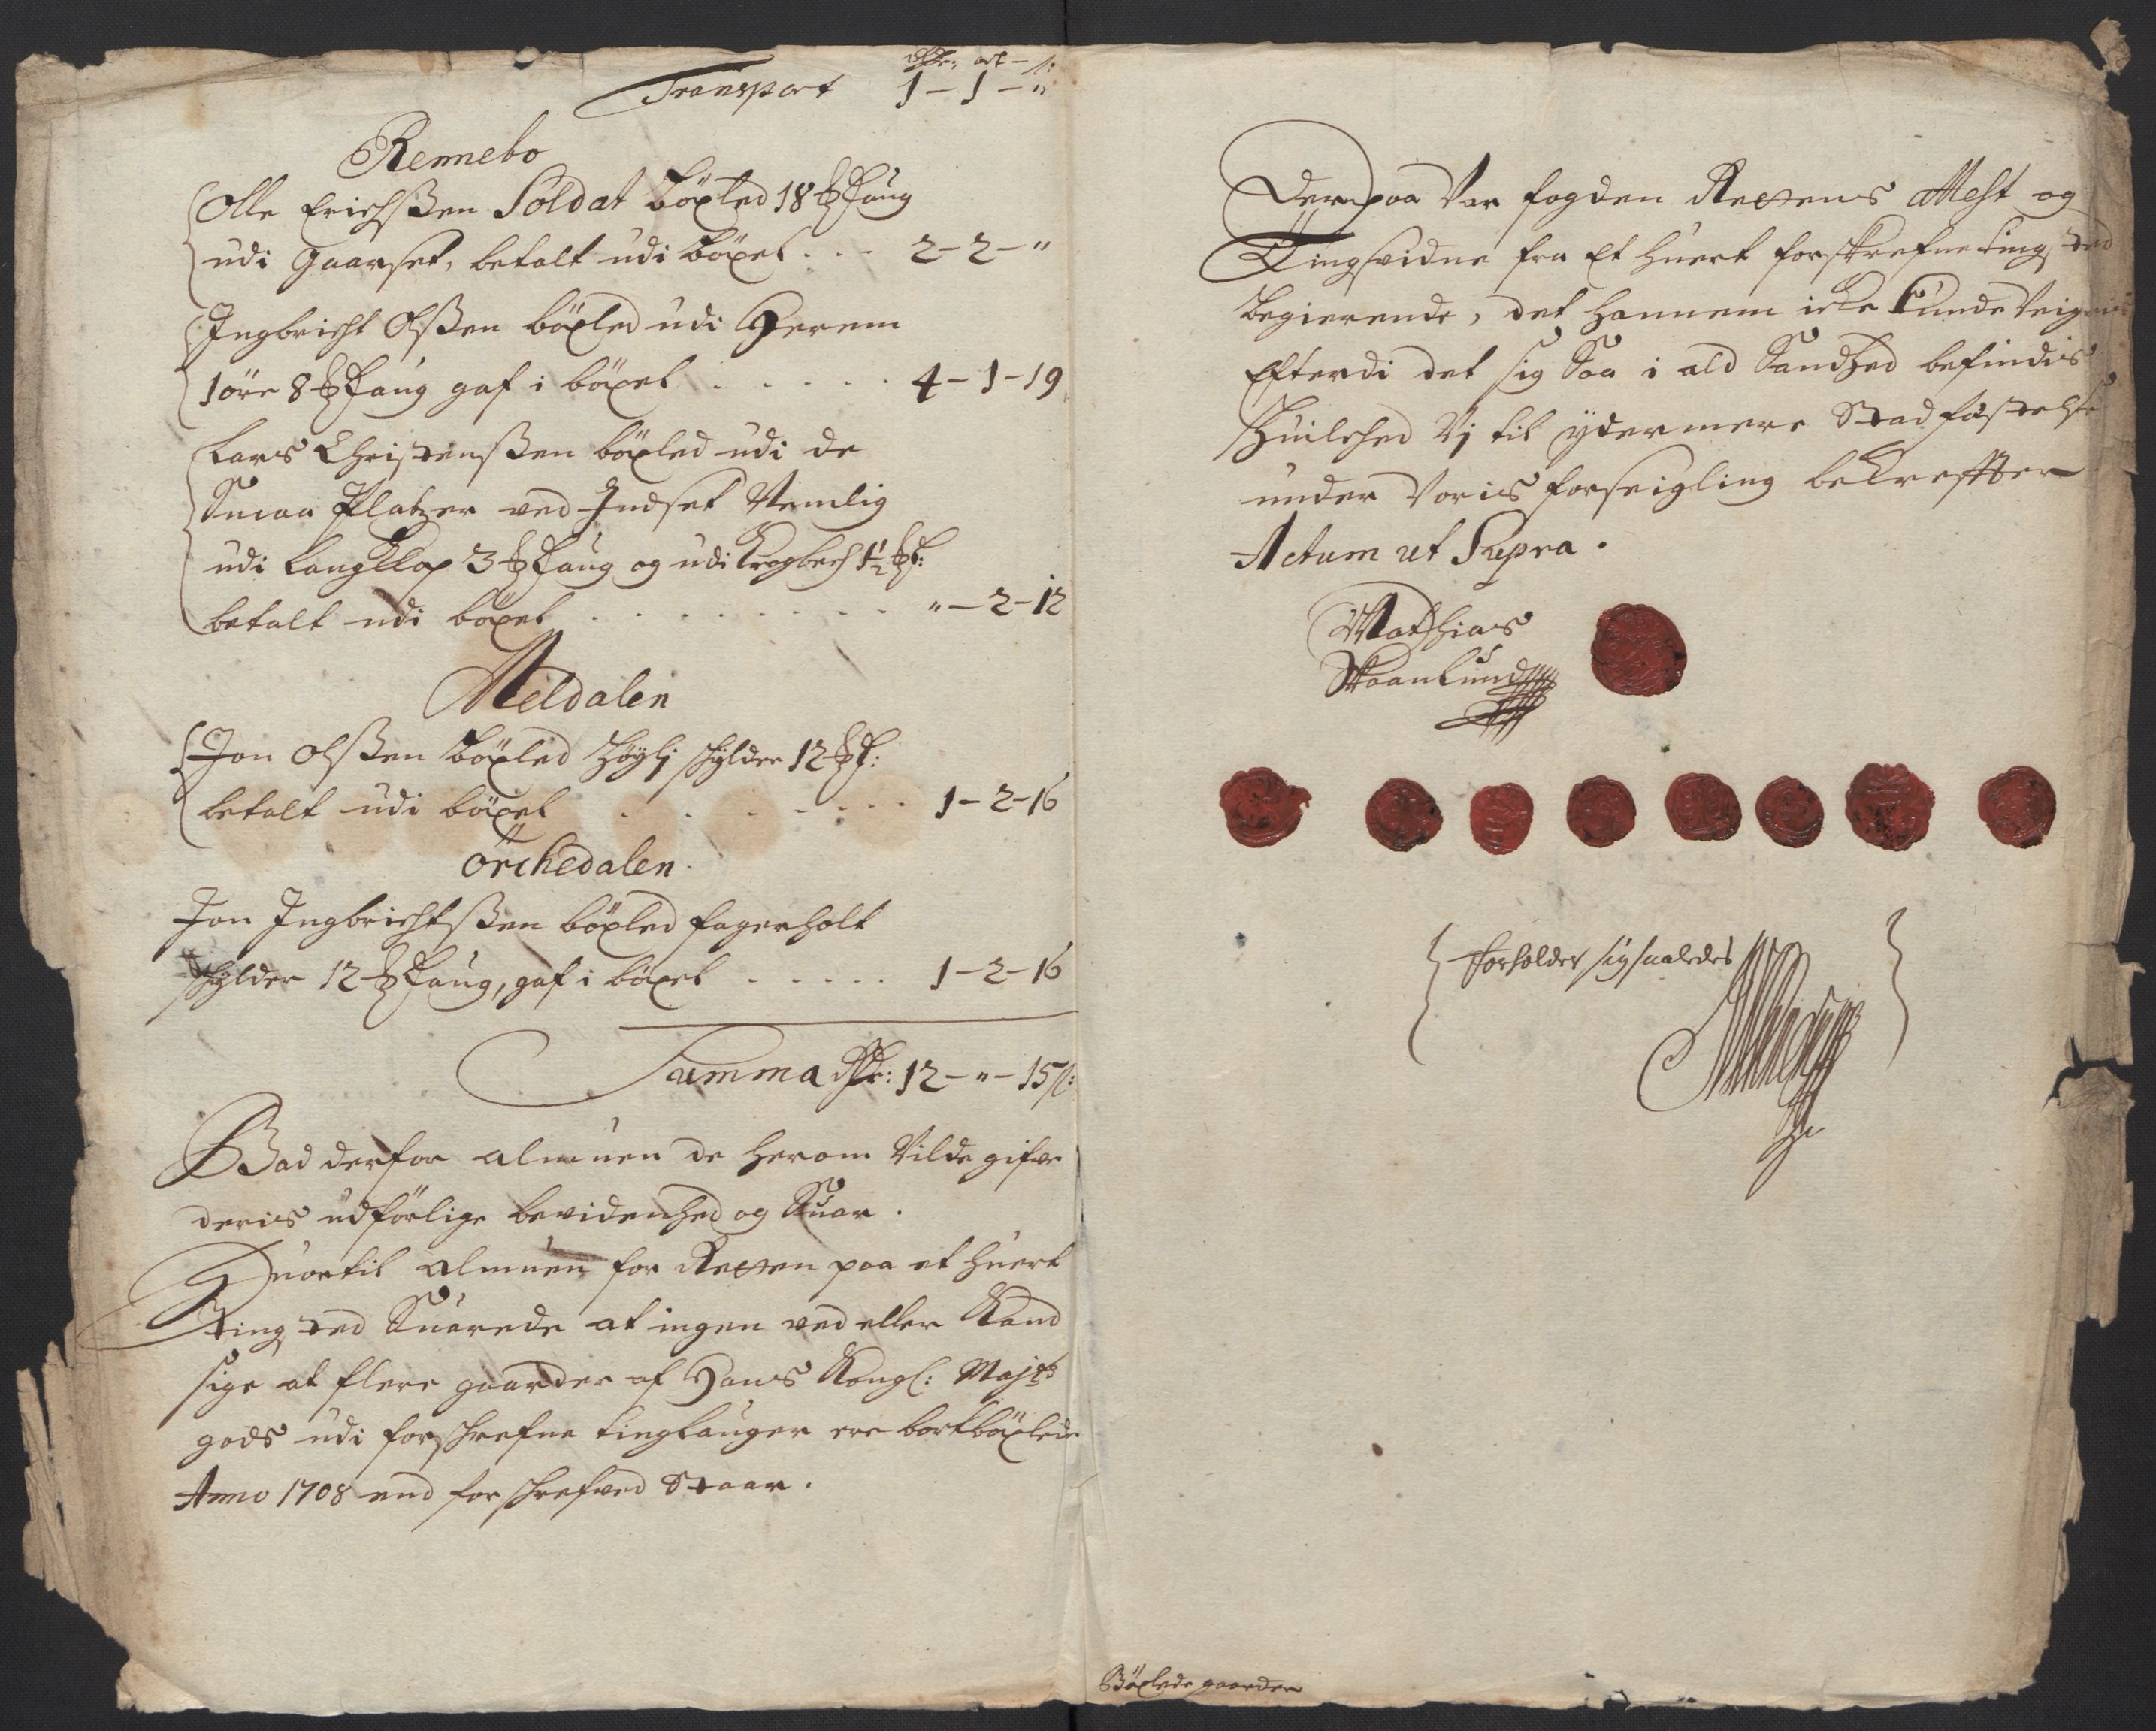 Rdr: ort – s:
Transport 1 – 1 – "
Rennebo
Olle Erichsen Soldat böxled 18 Laug
udi Gaarset, betalt udi böxel . . . 2 – 2 – "
Ingbricht Olsen böxled udi Herrem
1 öre 8 Laug gaf i böxel . . . . . 4 – 1 – 19
Lars Christensen böxled udi de
Smaa Platzer ved Indset Nemlig
udi Langklop 3 Laug og udi Krogbech 1½ L:
betalt udi böxel . . . . . . . . " – 2 – 12
Meldalen
Jon Olsen böxled schylder 12 L:
betalt udi böxel . . . . . . . 1 – 2 – 16
Örchedalen
Jon Ingbrichtsen böxled Fagerholt
schylder 12 Laug, gaf i böxel . . . . . 1 – 2 – 16
Summa Rdr: 12 – " – 15 s:
Bad derfor almuen de herom Vilde gifve
deris udförlige bevidenhed og Suar.
Huortil almuen for Retten paa et huert
Tingsted Suarede at ingen ved eller Kand
sige at flere gaarder af Hans Kongl: Majts
gods udi forschrefne tinglauger ere bortböxlede
Anno 1708 end forschrefved Staar.
Derpaa Var fogden Rettens Attest og
Tingsvidne fra Et huert forschrefne tingsted
begierende, det hannem iche Kunde
Efterdi det sig Saa i ald Sandhed befindis
Huilched Vj til ydermere Stadfæstelse
under Voris forseigling bekreffter
Actum ut Supra.
Mathias
Skaanlund
forholder sig saaledes
Böxlede gaarder